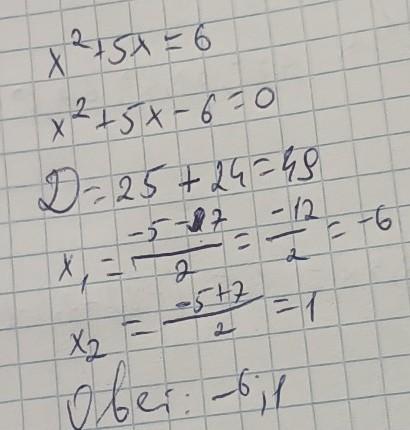 x²+5x=6
x²+5x-6=0
D=25+24=49
x₁=(-5-7)/2=-12/2=-6
x₂=(-5+7)/2=1
Овет: -6;1